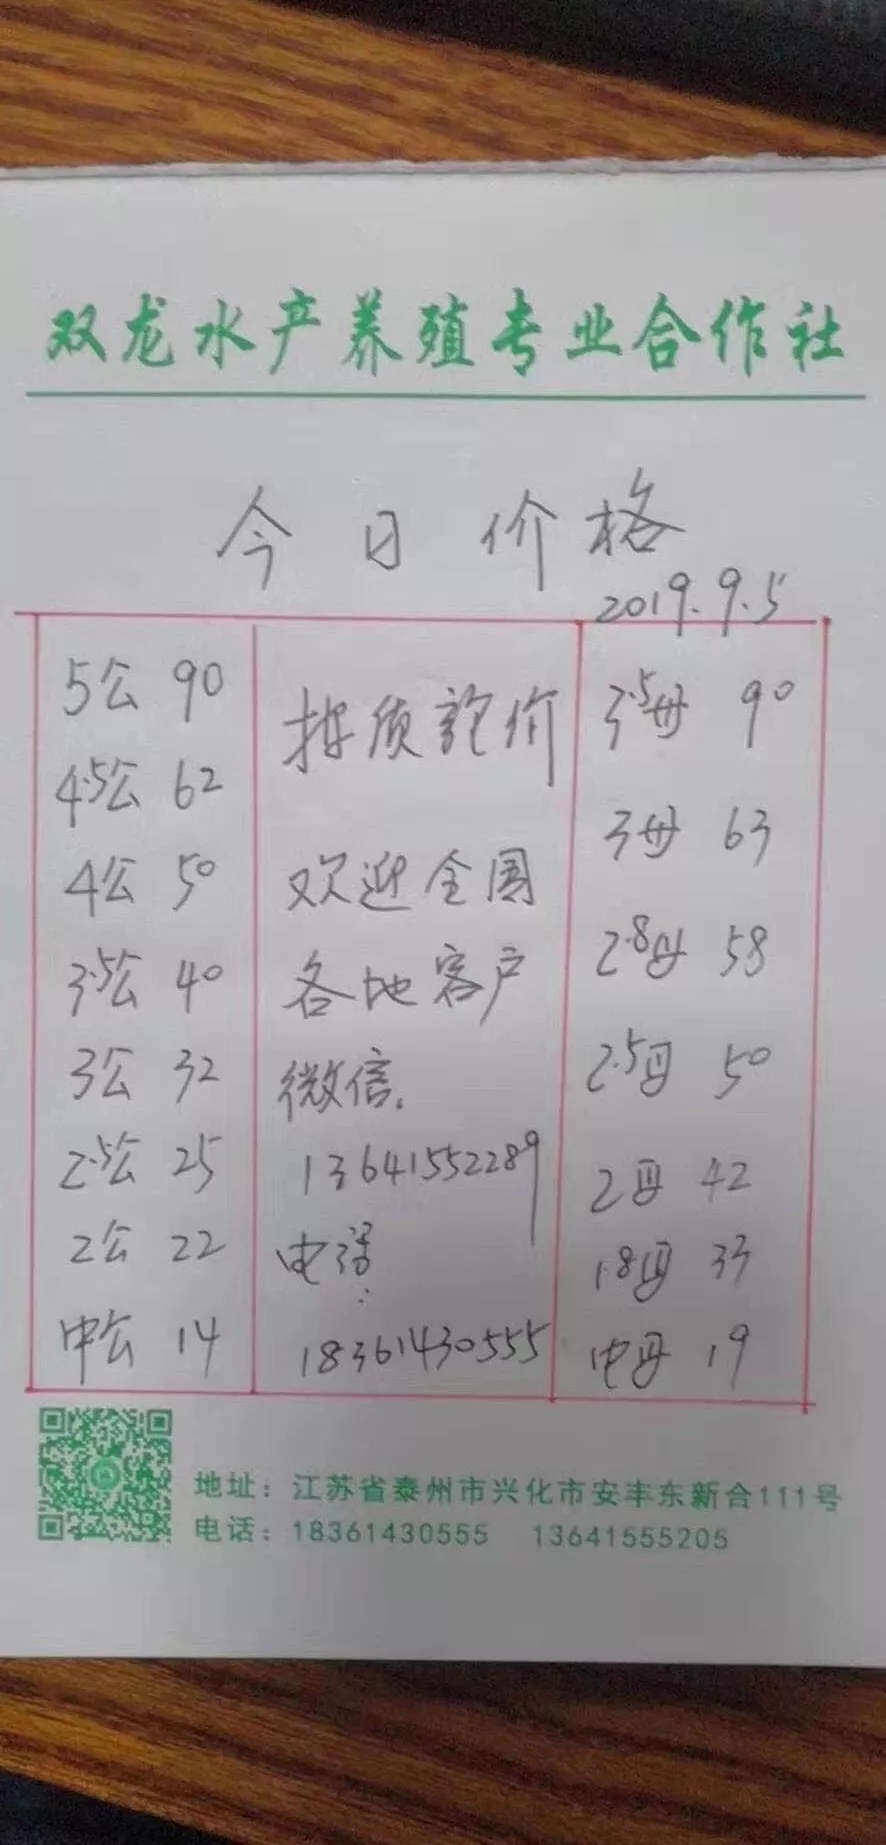 双龙水产养殖专业合作社
今日价格
2019.9.5
5公 90
4.5公 62
4公 50
3.5公 40
3公 32
2.5公 25
2公 22
中公 14
按质论价
欢迎全国
各地客户
微信.
13641552289
电话:
18361430555
3.5母 90
3母 63
2.8母 58
2.5母 50
2母 42
1.8母 33
中母 19
地址：江苏省泰州市兴化市安丰东新合111号
电话：18361430555 13641555205